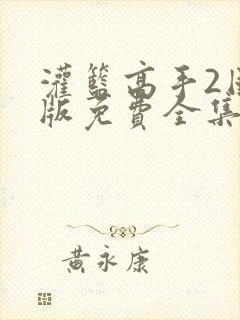 灌籃高手2
版免費全集
黃永康